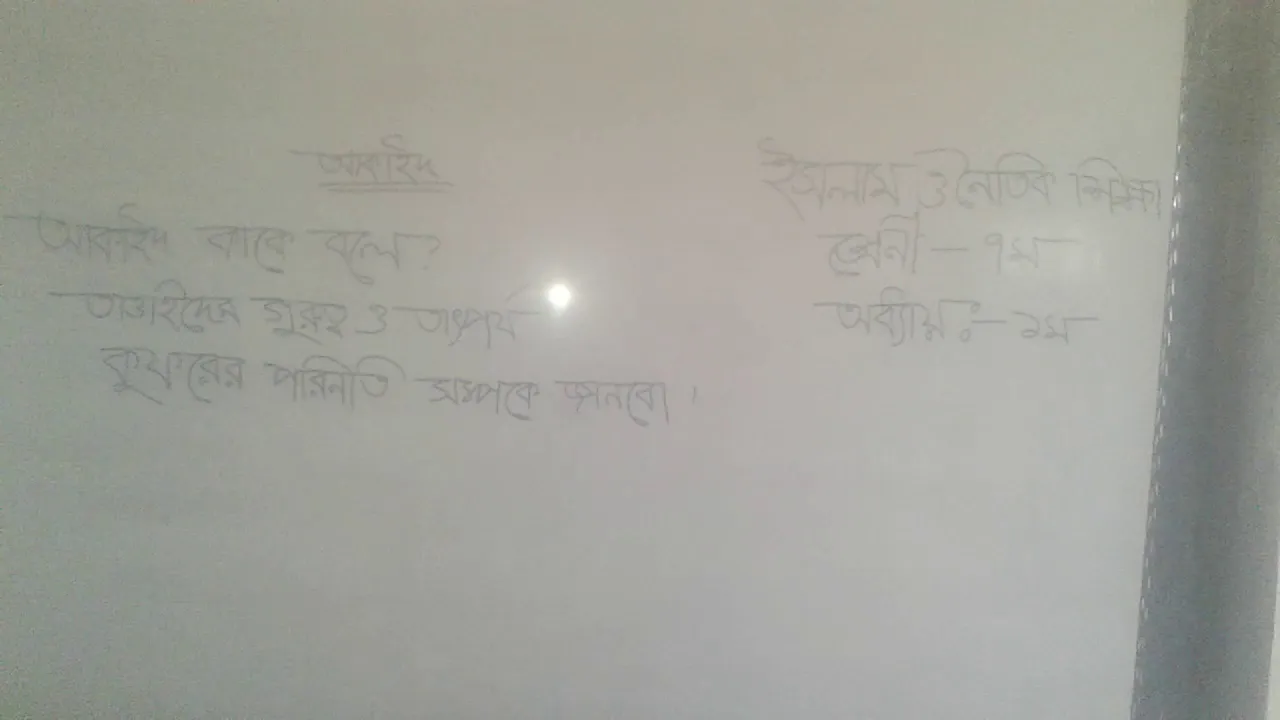 আকাইদ
আকাইদ কাকে বলে?
তাওহিদের গুরুত্ব ও তাৎপর্য
কুফরের পরিনীতি সম্পকে জানবো।
ইসলাম ও নৈতিক শিক্ষা
শ্রেনী – ৭ম
অধ্যায় ঃ– ১ম